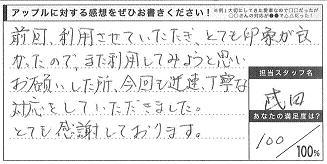 アップルに対する感想をぜひお書きください!
前回、利用させていただき、とても印象が良
かったので、また利用してみようと思い
お願いした所、今回も迅速、丁寧な
対応をしていただきました。
とても感謝しております。
担当スタッフ名
武田
あなたの満足度は?
100/100%